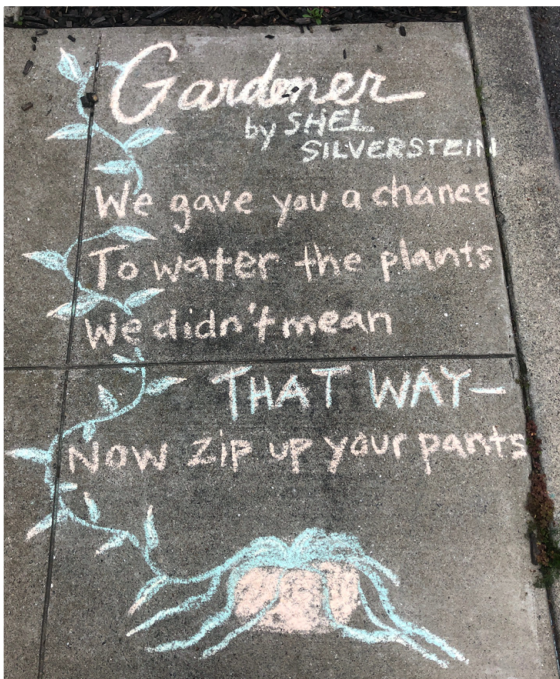 Gardener
by SHEL
SILVERSTEIN
We gave you a chance
To water the plants
We didn't mean
THAT WAY—
Now zip up your pants